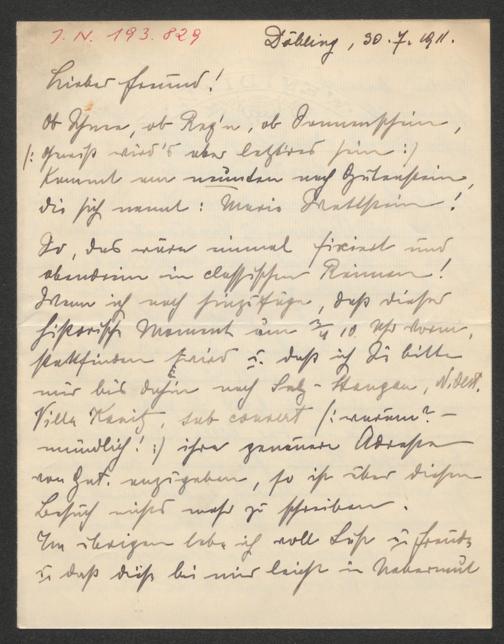 J. N. 193.829
Döbling, 30.7.1911.
Lieber Freund!
Ob Schnee, ob Reg'n, ob Sonnenschein,
/: gewiß wird's aber letzt'res sein :/
Kommt am neunten nach Gutenstein,
die sich nennt: Marie Wettstein!
So, das wäre einmal fixiert und
obendrein in classischen Reimen!
Wenn ich noch hinzufüge, daß dieser
historische Moment um 3/4 10 Uhr vorm.
stattfinden wird u. daß ich Sie bitte
mir bis dahin nach Salz-Stangau, N.Öst.
Villa Kanitz, sub couvert /: warum? –
mündlich! :/ ihre genauere Adresse
von Gut. anzugeben, so ist über diesen
Besuch nichts mehr zu schreiben.
Im übrigen lebe ich voll Lust u. Freude
u. daß diese bei mir leicht in Uebermut